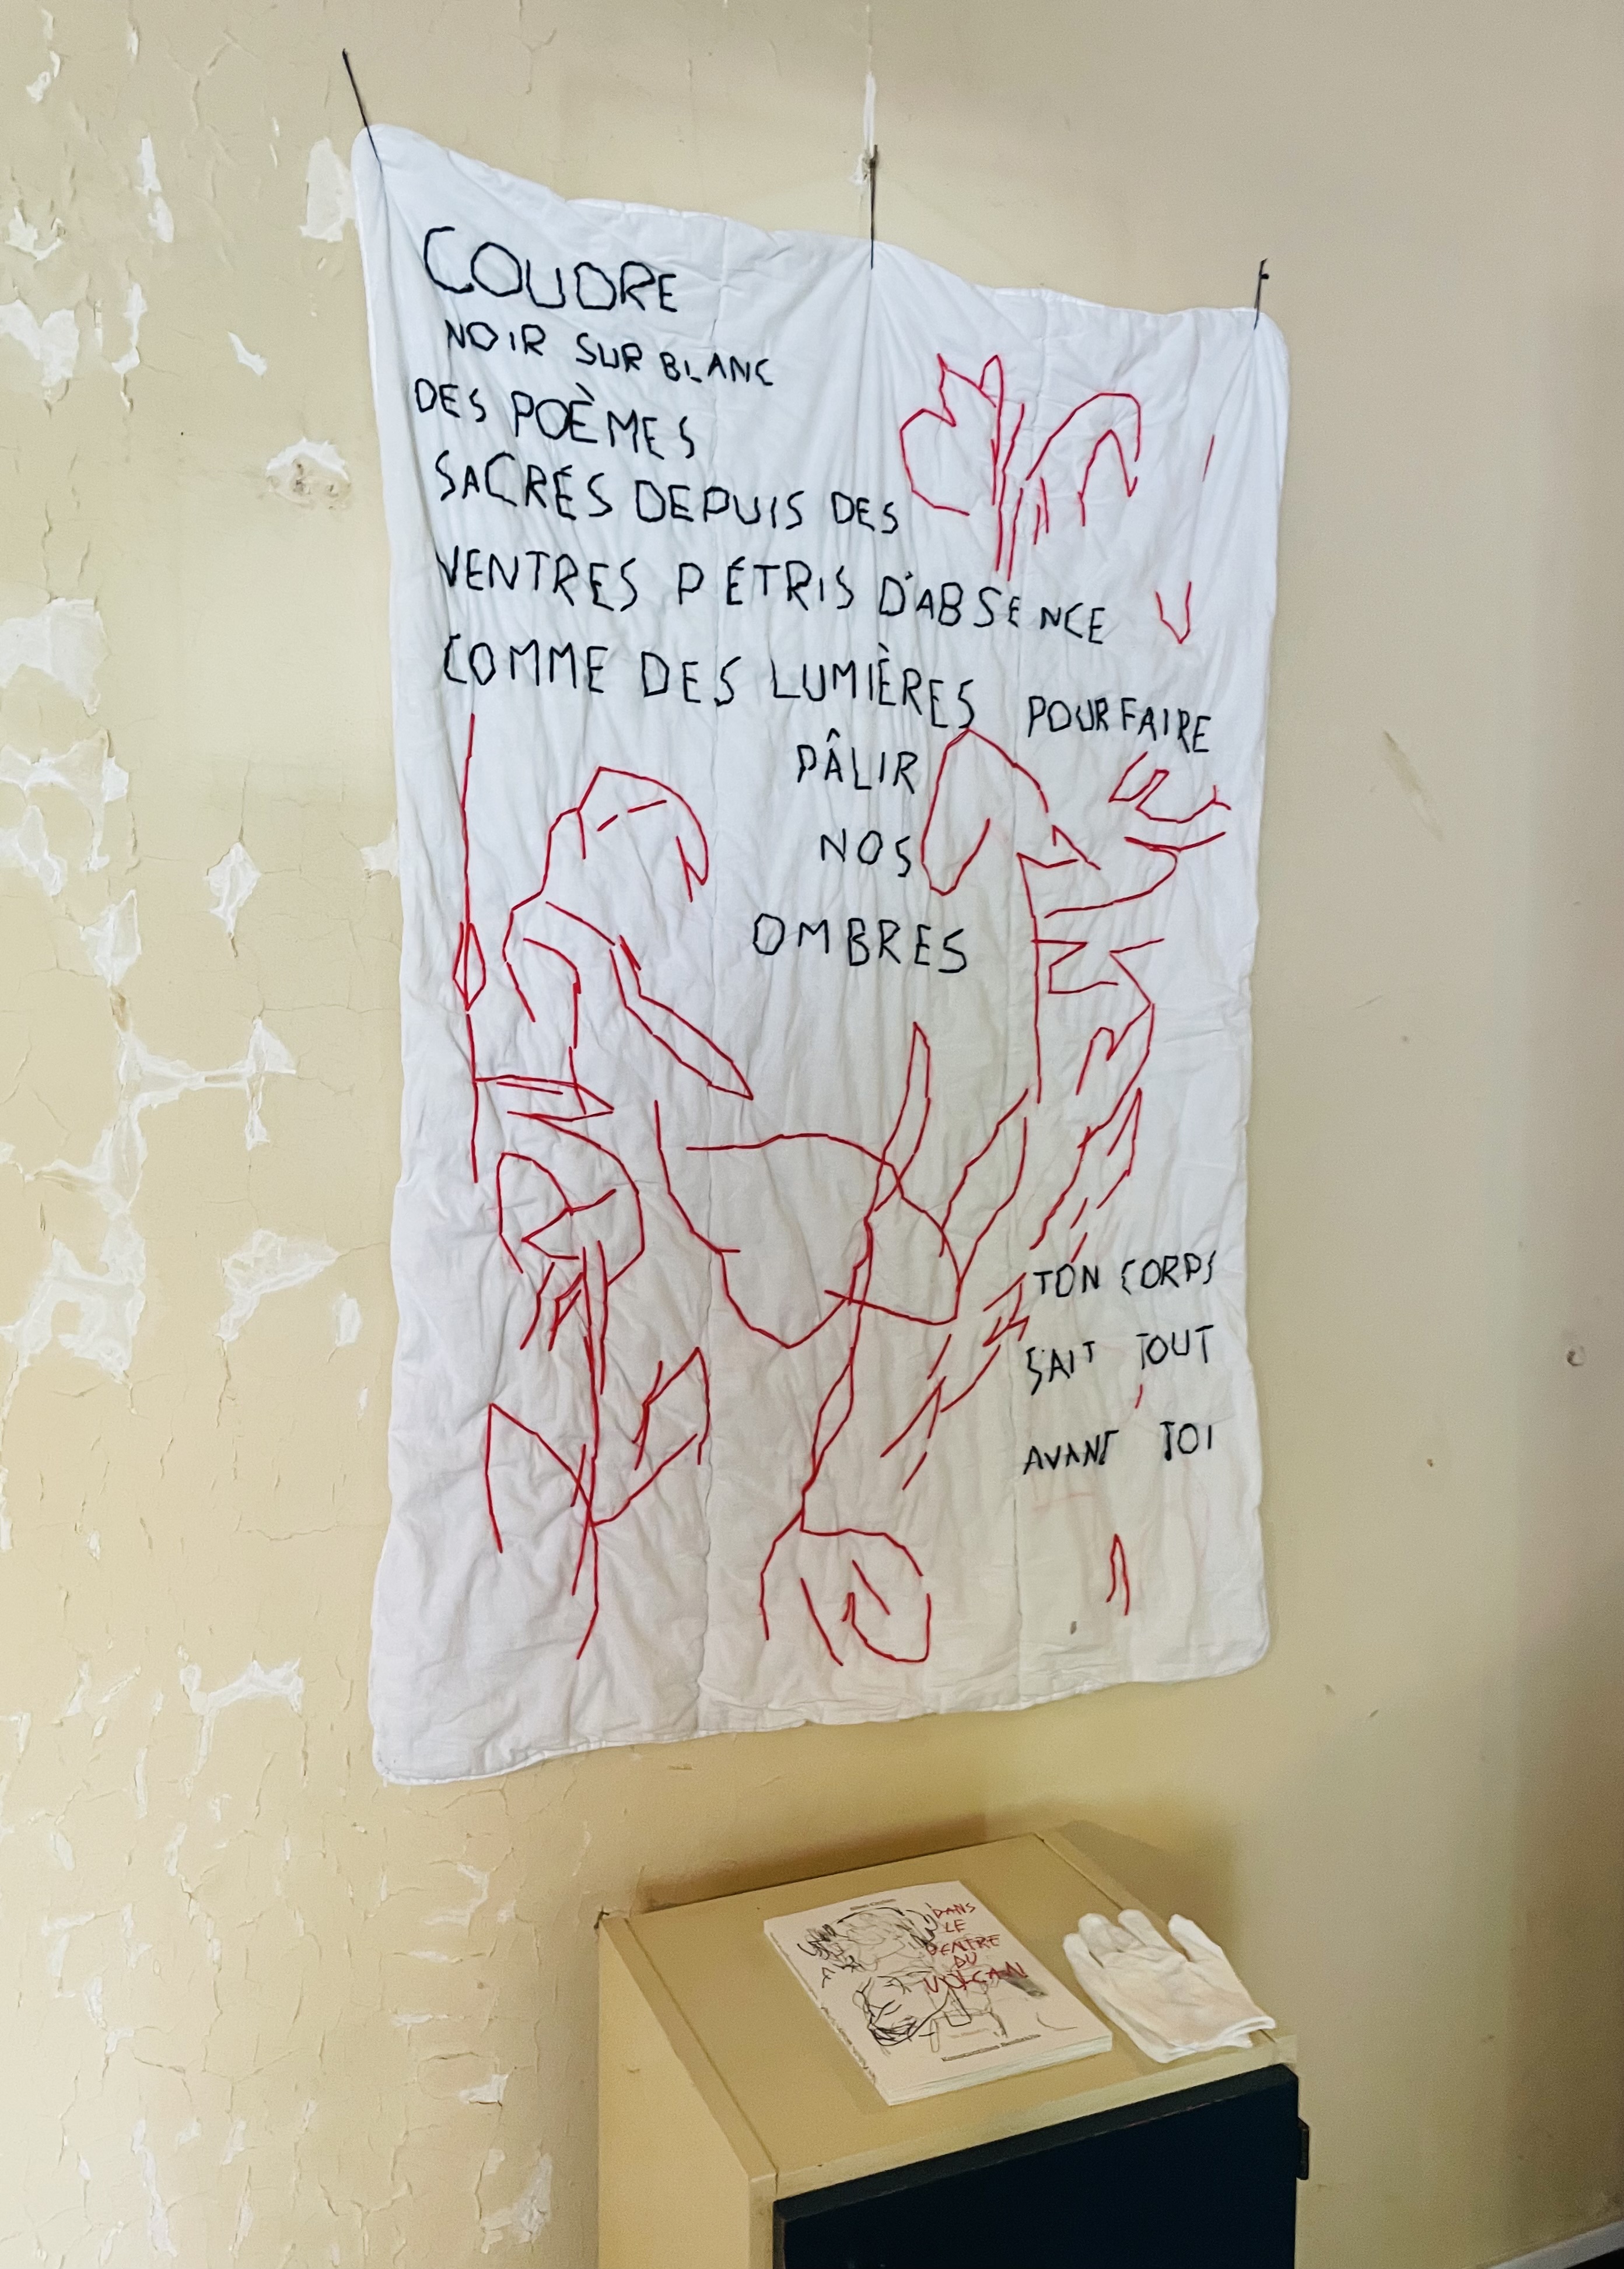 COUDRE
NOIR SUR BLANC
DES POÈMES
SACRÉS DEPUIS DES
VENTRES PÉTRIS D'ABSENCE
COMME DES LUMIÈRES POUR FAIRE
PÂLIR
NOS
OMBRES
TON CORPS
SAIT TOUT
AVANT TOI
DANS
LE
VENTRE
DU
VOLCAN